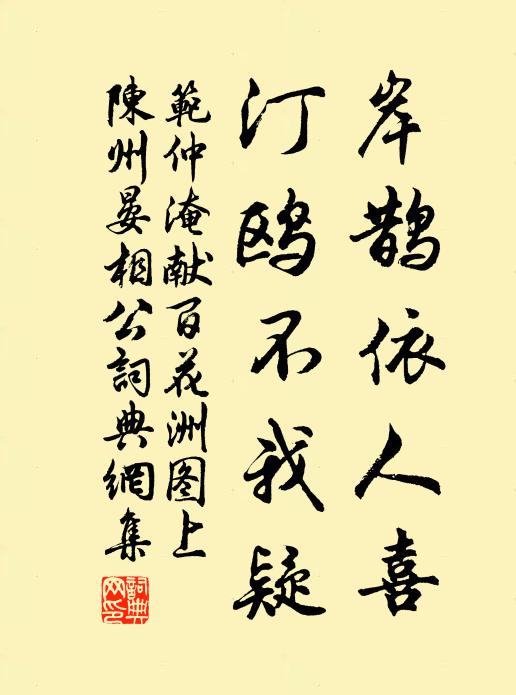 岸鹊依人喜
汀鸥不我疑
範仲淹献百花洲图上
陳州晏相公詞典網集
詞典网印